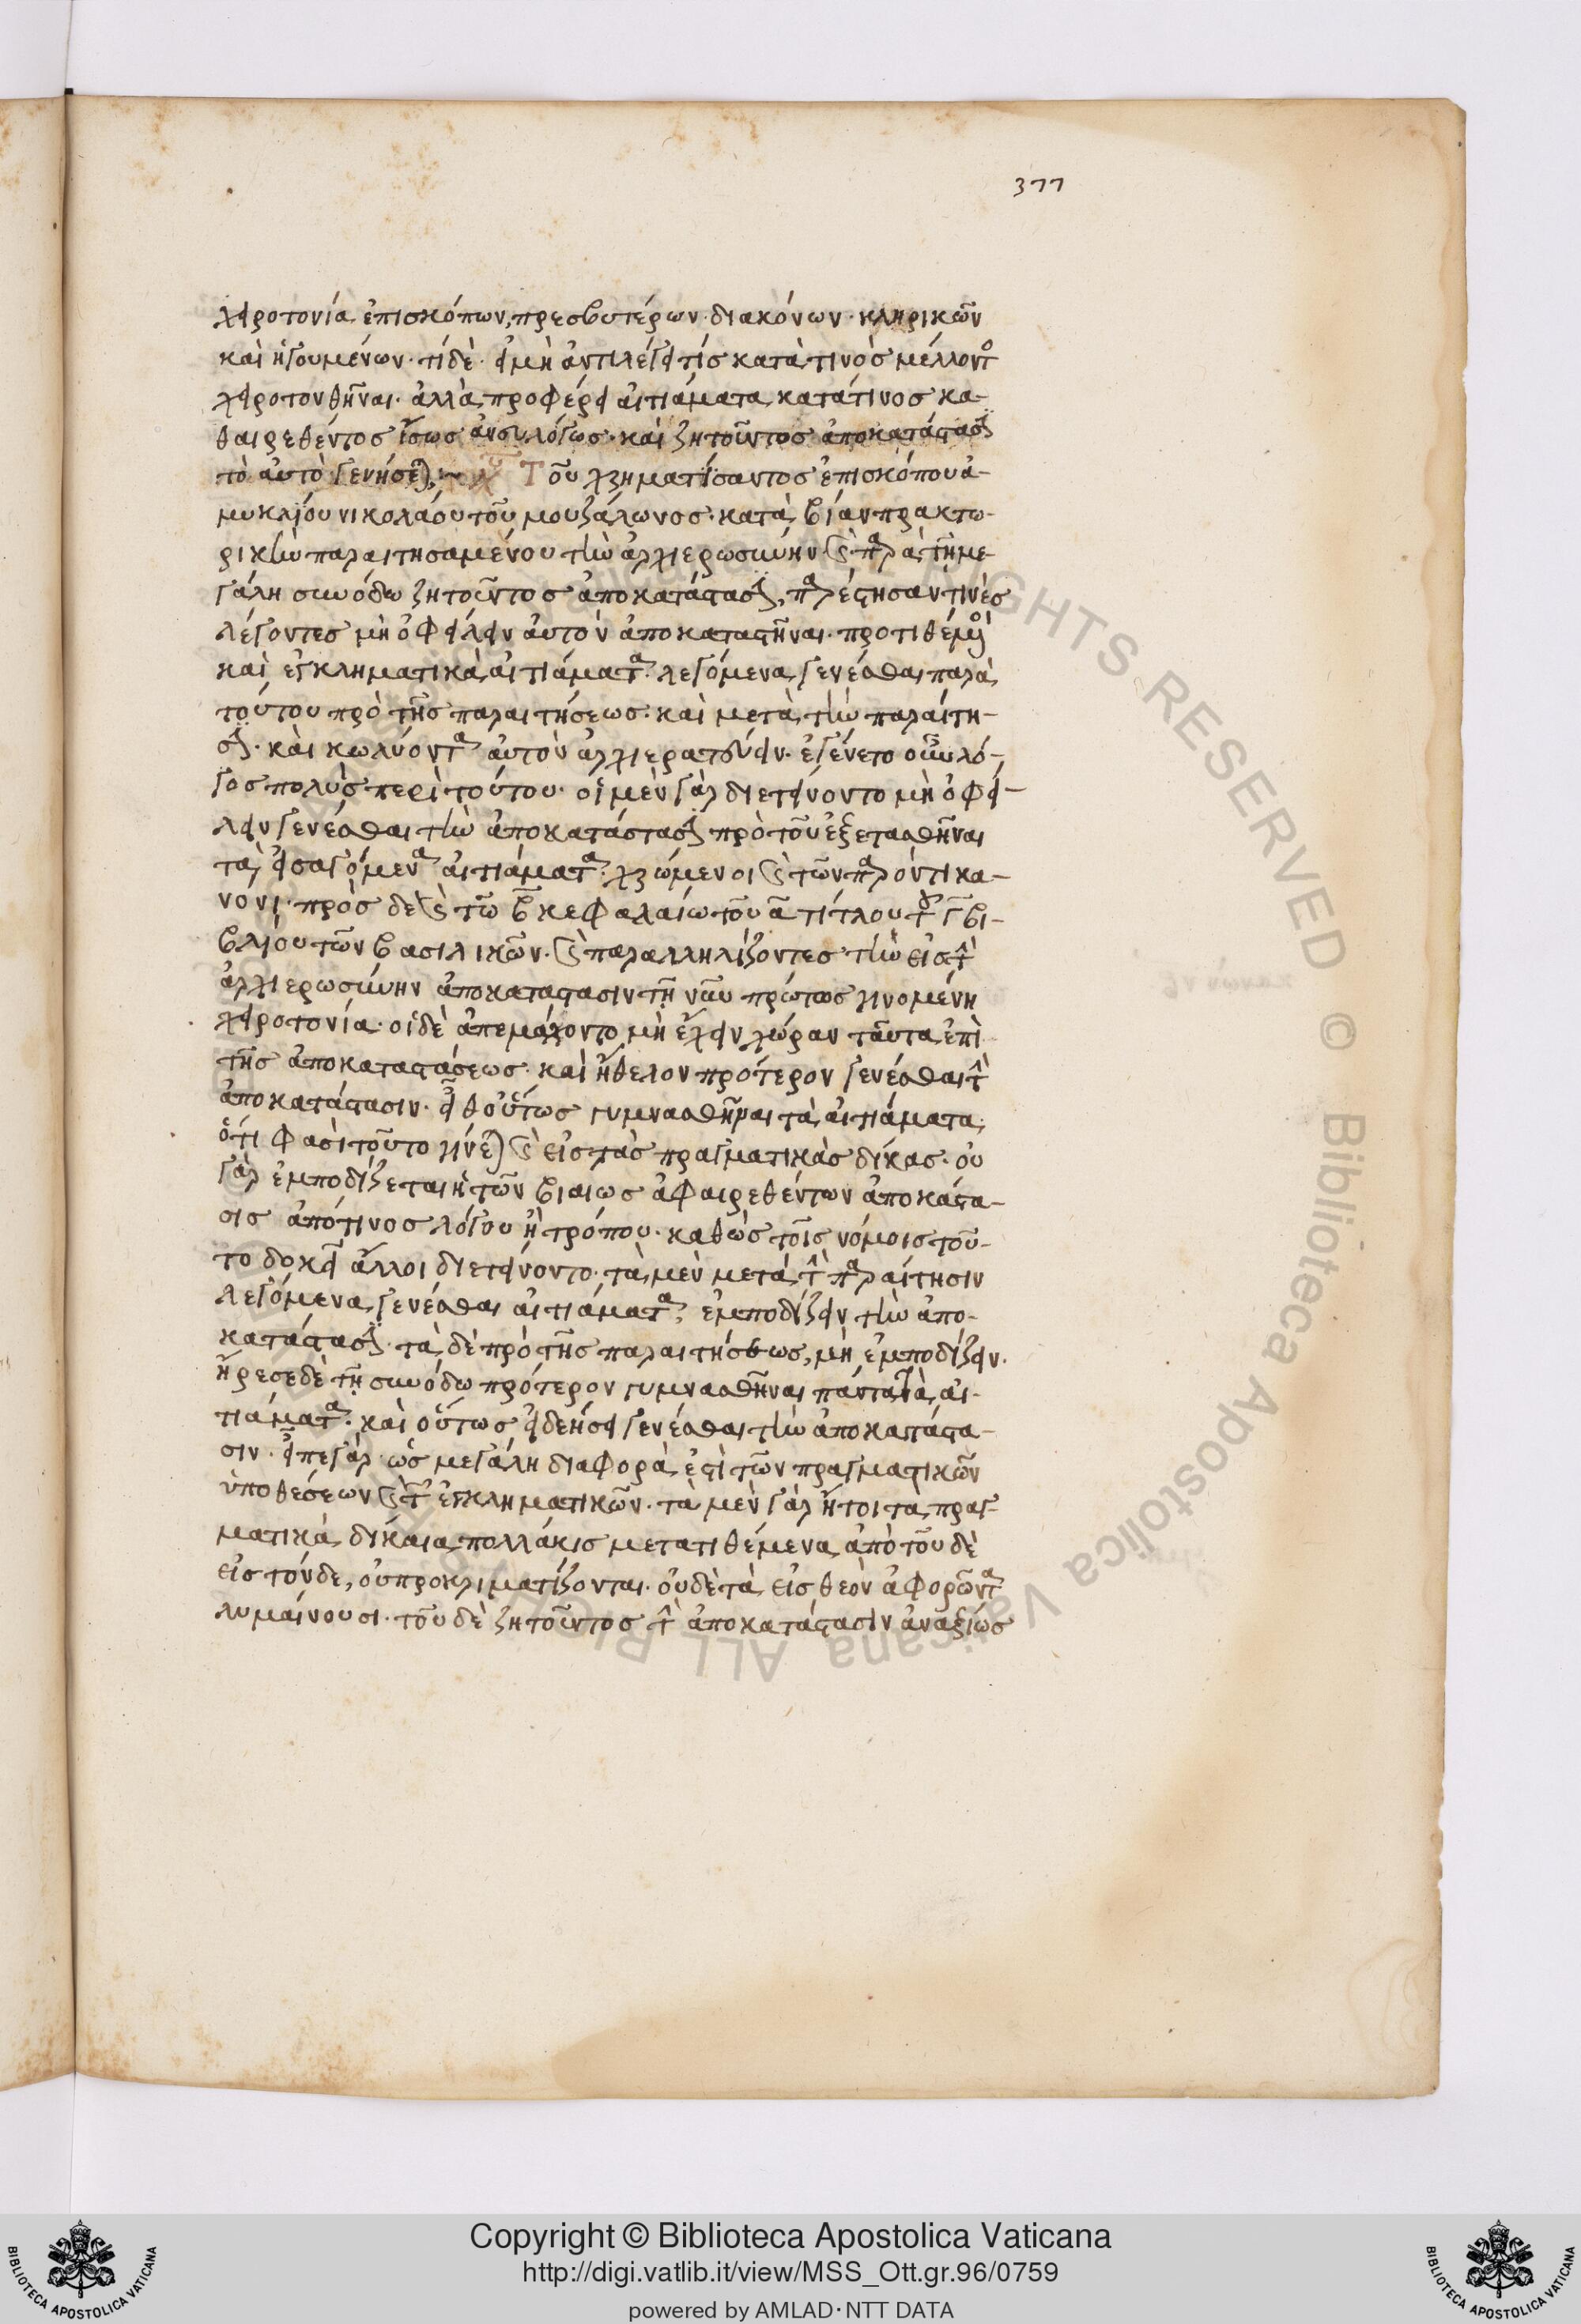 377
χειροτονία ἐπισκόπων, πρεσβυτέρων· διακόνων· κληρικῶν
καὶ ἡγουμένων· τί δὲ· εἰ μὴ ἀντιλέγει τίσ κατὰ τινὸσ μέλλοντο
χειροτονθῆναι· ἀλλὰ προφέρει αἰτιάματα κατά τινοσ κα-
θαιρεθέντοσ ἴσωσ ἀνσυλόγωσ· καὶ ζητοῦντοσ ἀποκατάστασιν
τὸ αὐτὸ γενήσεται Τοῦ χρηματίσαντοσ ἐπισκόπου ἀ-
μυκλίου νικολάου τοῦ μουζάλωνοσ· κατὰ βίαν πρακτο-
ρικὴν παραιτησαμένου τὴν ἀρχιερωσύνην καὶ παρὰ τῆ με-
γάλη συνόδω ζητοῦντοσ ἀποκατάστασιν, παρέστησαν τινὲσ
λέγοντεσ μὴ ὀφείλειν αὐτὸν ἀποκαταστῆναι· προτιθέμενοι
καὶ ἐγκληματικὰ αἰτιάματα· λεγόμενα γενέσθαι παρὰ
τούτου πρὸ τῆσ παραιτήσεωσ· καὶ μετὰ τὴν παραίτη-
σιν· καὶ κωλύοντα αὐτὸν ἀρχιερατεύειν· ἐγένετο οὖν λό-
γοσ πολὺσ περὶ τούτου· οἱ μὲν γὰρ διετείνοντο μὴ ὀφεί-
λειν γενέσθαι τὴν ἀποκατάστασιν πρὸ τοῦ ἐξετασθῆναι
τὰ εἰσαγόμενα αἰτιάματα· χρώμενοι καὶ τῶν παρόντι κα-
νόνι· πρὸσ δὲ καὶ τῶ β κεφαλαίω τοῦ α τίτλου τοῦ γ βι-
βλίου τῶν βασιλικῶν· καὶ παραλληλίζοντεσ τὴν εἰσ τὴν
ἀρχιερωσύνην ἀποκατάστασιν τῆ νῦν πρώτωσ γινομένη
χειροτονία· οἱ δὲ ἀπεμάχοντο μὴ ἔχειν χώραν ταῦτα ἐπὶ
τῆσ ἀποκαταστάσεωσ· καὶ ἤθελον πρότερον γενέσθαι τὴν
ἀποκατάστασιν· εἶθ οὕτωσ γυμνασθῆναι τὰ αἰτιάματα·
ὅτι φασὶ τοῦτο γίνεται καὶ εἰσ τὰσ πραγματικὰσ δίκασ· οὐ
γὰρ ἐμποδίζεται ἡ τῶν βιαίωσ ἀφαιρεθέντων ἀποκάτα-
σισ ἀπό τινοσ λόγου ἢ τρόπου· καθὼσ τοῖσ νόμοισ τοῦ-
το δοκεῖ ἄλλοι διετείνοντο· τὰ μὲν μετὰ τὴν παραίτησιν
λεγόμενα γενέσθαι αἰτιάματα, ἐμποδίζειν τὴν ἀπο-
κατάστασιν· τὰ δὲ πρὸ τῆσ παραιτήσεωσ, μὴ ἐμποδίζειν·
ἤρεσε δὲ τῆ συνόδω πρότερον γυμνασθῆναι πάντα τὰ αἰ-
τιάματα· καὶ οὕτωσ εἰ δεήσει γενέσθαι τὴν ἀποκατάστα-
σιν· εἶπε γὰρ ὡσ μεγάλη διαφορὰ ἐστὶ τῶν πραγματικῶν
ὑποθέσεων καὶ τῶν ἐγκληματικῶν· τὰ μὲν γὰρ ἤτοι τὰ πραγ-
ματικὰ δίκαια πολλάκισ μετατιθέμενα ἀπὸ τοῦδε
εἰσ τόνδε, οὐ προκριματίζονται· οὐδὲ τὰ εἰσ θεὸν ἀφορῶντα
λυμαίνουσι· τοῦ δὲ ζητοῦντοσ τὴν ἀποκατάστασιν ἀναξίωσ
RIGHTS RESERVED © Biblioteca Apostolica Vaticana ALL RIGHTS
Copyright © Biblioteca Apostolica Vaticana
http://digi.vatlib.it/view/MSS_Ott.gr.96/0759
powered by AMLAD·NTT DATA
BIBLIOTECA APOSTOLICA VATICANA
BIBLIOTECA APOSTOLICA VATICANA